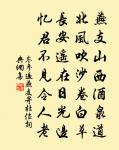 燕支山西酒泉道
北風吹沙卷白草
長安遥在日光邊
憶君不見令人老
岑參過燕支寄杜位